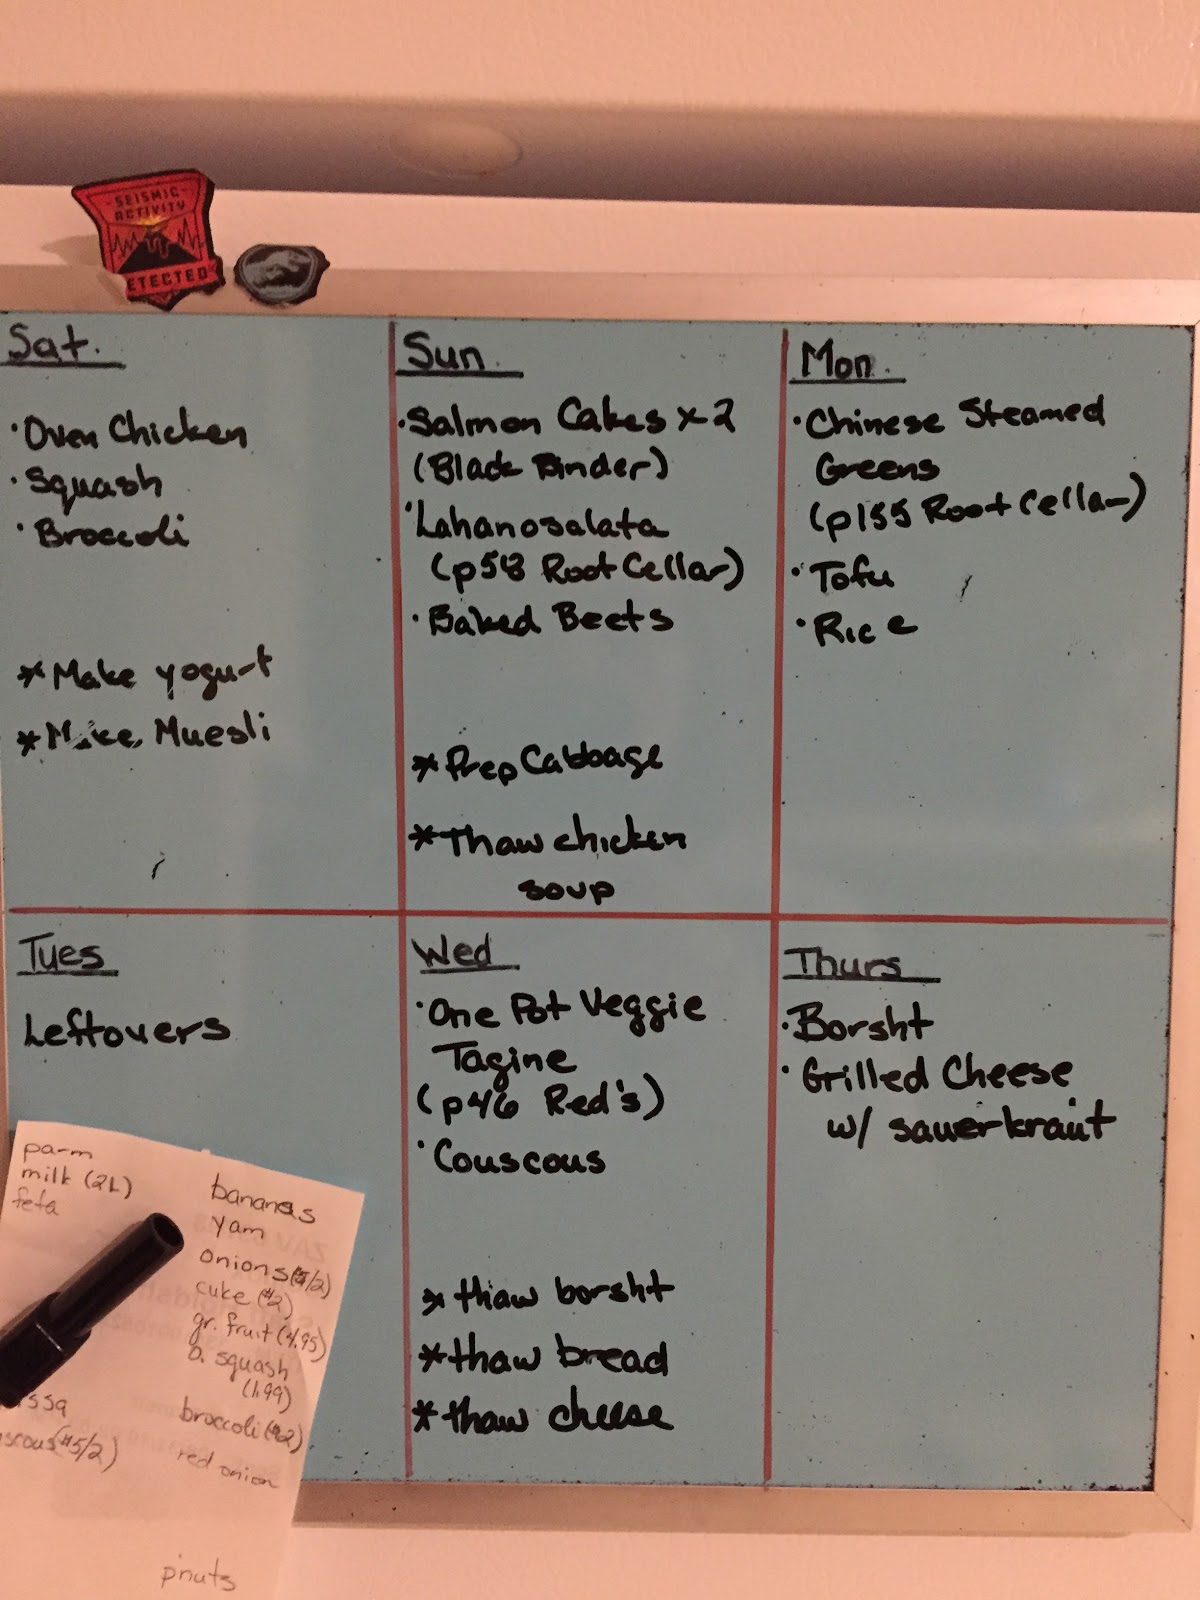 SEISMIC
ACTIVITY
ETECTED
Sat.
· Oven Chicken
· Squash
· Broccoli
* Make yogurt
* Make Muesli
Sun.
· Salmon Cakes x 2
(Black Binder)
· Lahanosalata
(p58 Root Cellar)
· Baked Beets
* Prep Cabbage
* Thaw chicken
soup
Mon.
· Chinese Steamed
Greens
(p155 Root Cellar)
· Tofu
· Rice
Tues
Leftovers
Wed
· One Pot Veggie
Tagine
(p46 Red's)
· Couscous
* thaw borsht
* thaw bread
* thaw cheese
Thurs
· Borsht
· Grilled Cheese
w/ sauerkraut
parm
milk (2L)
feta
($5/2)
bananas
yam
onions ($5/2)
cuke ($2)
gr. fruit (4.95)
a. squash
(1.99)
broccoli ($2)
red onion
pnuts